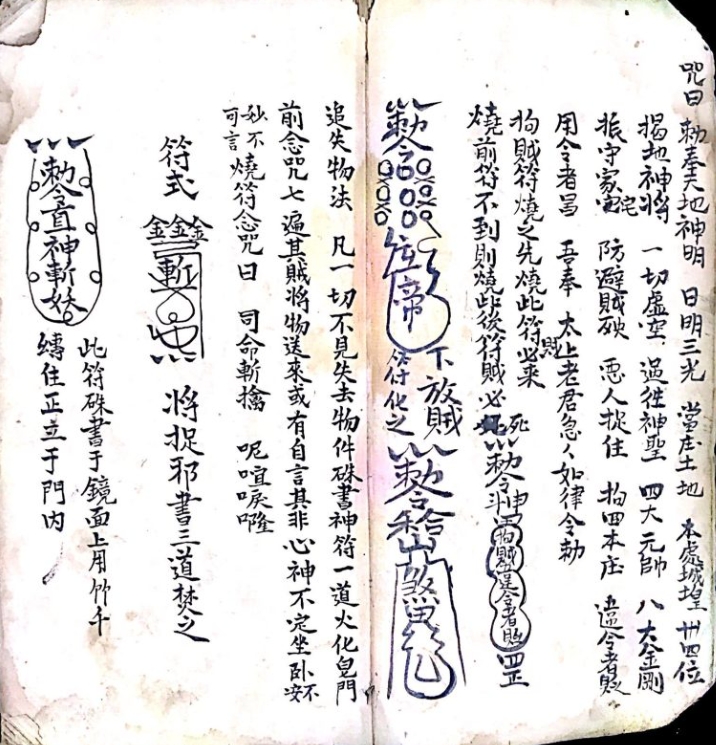 咒曰 勅奉天地神明 日明三光 當庄土地 本處城隍 卅四位
揭地神將 一切虛空 過往神聖 四大元帥 八大金剛
振守家宅 防避賊 惡人捉住 拘回本庄 違令者
用令者昌 吾奉 太上老君急人如律令勅
拘賊符燒之先燒此符賊必來
燒前符不到則燒此後符賊必死
勅令
下放賊
符化之
勅令
追失物法 凡一切不見失去物件硃書神符一道火化皂門
前念咒七遍其賊將物送來或有自言其非心神不定坐臥不安
妙不可言燒符念咒曰 司命斬擒 呢喧唳㘄
符式
斬
將捉邪書三道焚之
勅令置神斬妖
此符硃書于鏡面上用竹千
縛住正立于門內